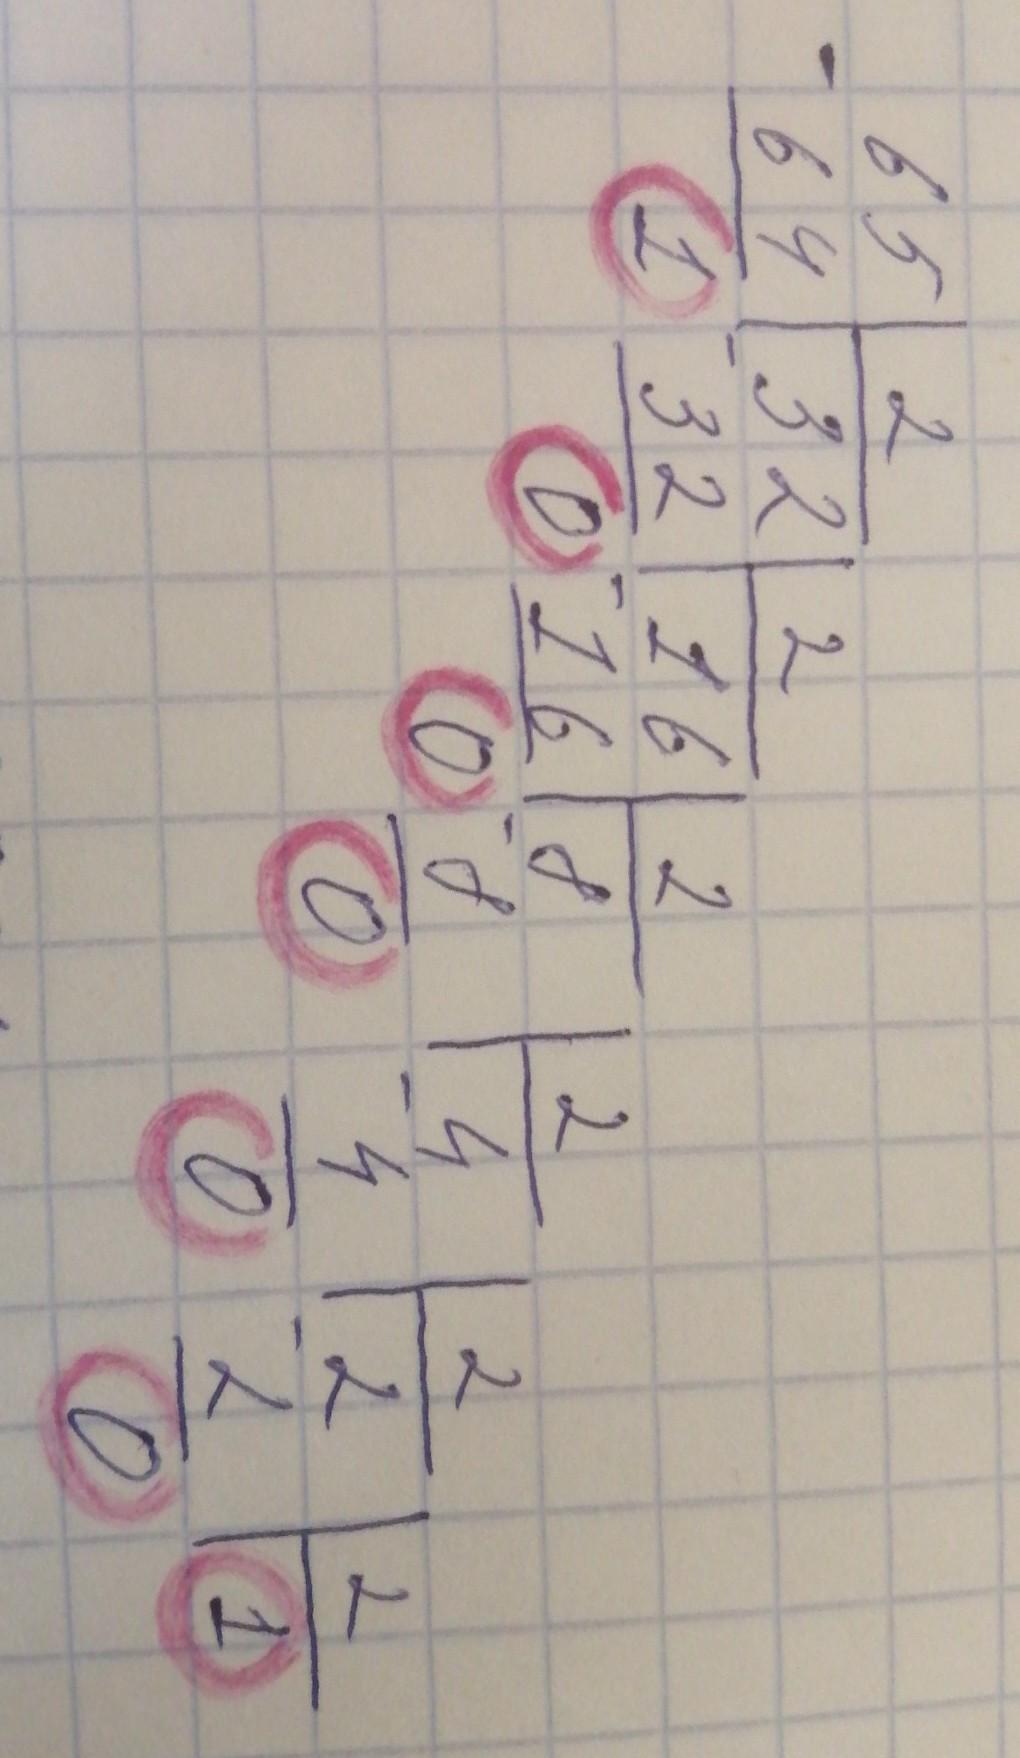 65 2
- 64 32 2
1 - 32 16 2
0 - 16 8 2
0 - 8 4 2
0 - 4 2 2
0 - 2 1
0